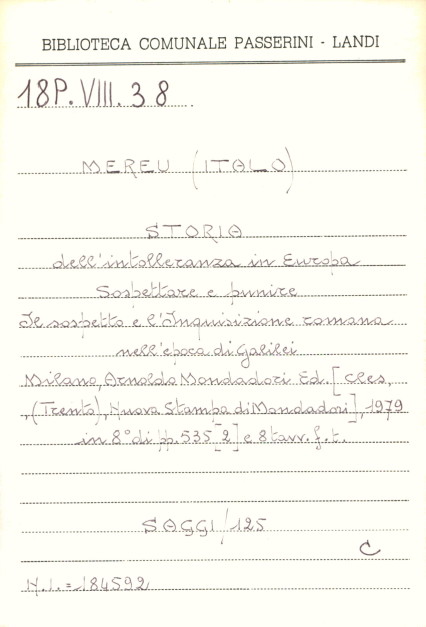 BIBLIOTECA COMUNALE PASSERINI - LANDI
18P. VIII. 38
MEREU (ITALO)
STORIA
dell'intolleranza in Europa
Sospettare e punire
Il sospetto e l'Inquisizione romana
nell'epoca di Galilei
Milano, Arnoldo Mondadori Ed. [Cles,
(Trento), Nuova Stampa di Mondadori], 1979
in 8° di pp. 535 [2] e 8 tavv. f. t.
SAGGI / 125
C
N.I. = 184592